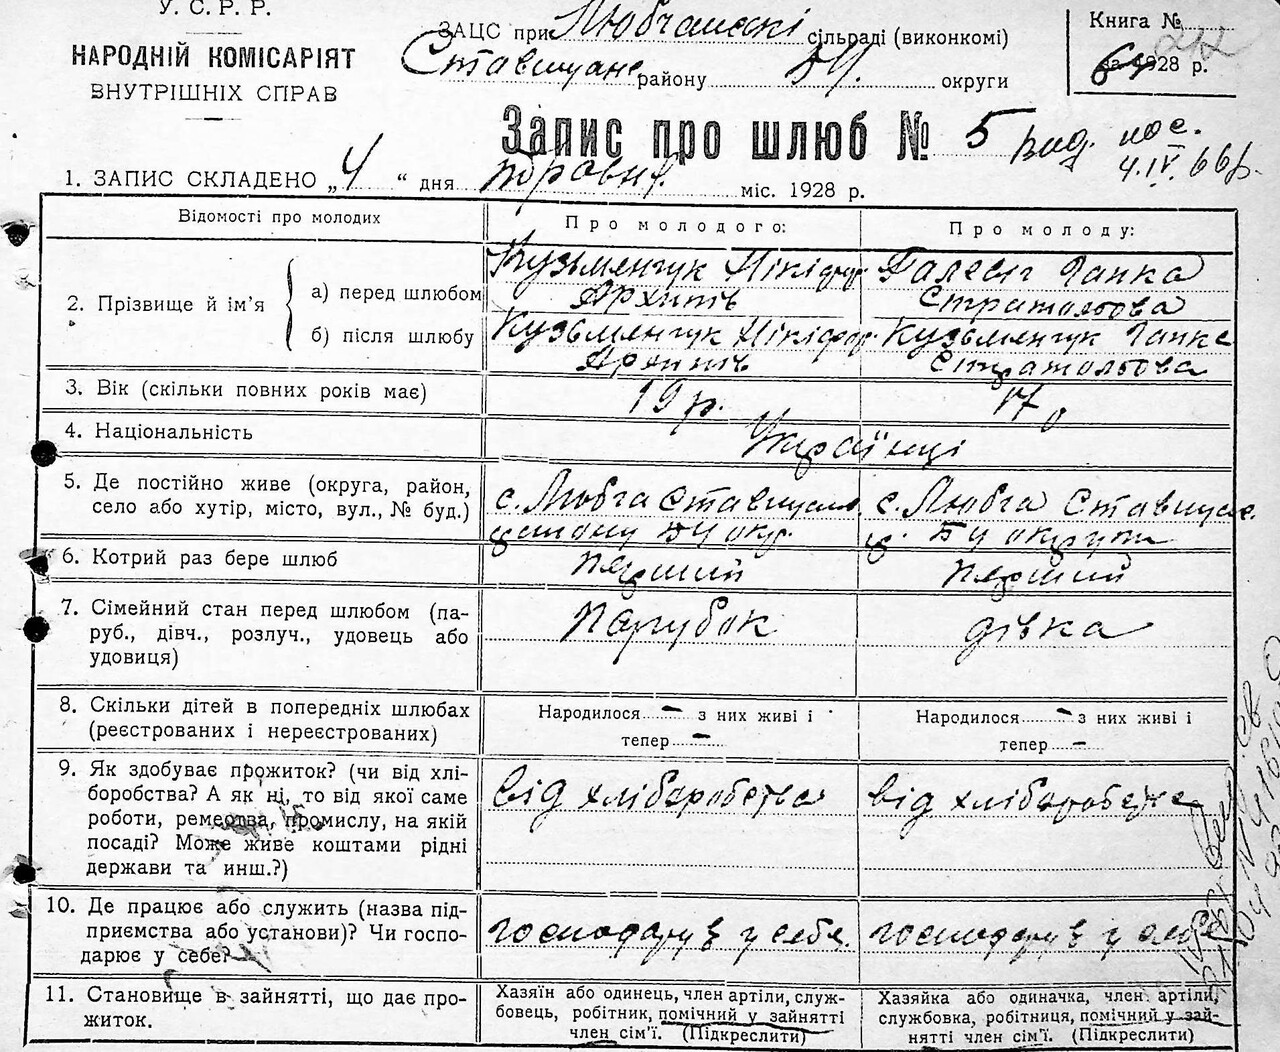 У. С. Р. Р.
НАРОДНІЙ КОМІСАРІЯТ
ВНУТРІШНІХ СПРАВ
ЗАЦС при сільраді (виконкомі)
району БЦ. округи
Книга №
212
за 1928 р.
Запис про шлюб № 5
4.IV.66р.
1. ЗАПИС СКЛАДЕНО „4“ дня міс. 1928 р.
Відомості про молодих
Про молодого:
Про молоду:
2. Прізвище й ім'я
а) перед шлюбом
Кузьменчук Нікіфор
Архипів
Ганка
б) після шлюбу
Кузьменчук Нікіфор
Архипів
Кузьменчук Ганка
3. Вік (скільки повних років має)
19 р.
17
4. Національність
Українці
5. Де постійно живе (округа, район,
село або хутір, місто, вул., № буд.)
с. Любча
БЦ окр.
с. Любча
р. БЦ округи
6. Котрий раз бере шлюб
перший
перший
7. Сімейний стан перед шлюбом (па-
руб., дівч., розлуч., удовець або
удовиця)
Парубок
дівка
8. Скільки дітей в попередніх шлюбах
(реєстрованих і нереєстрованих)
Народилося – з них живі і
тепер –
Народилося – з них живі і
тепер –
9. Як здобуває прожиток? (чи від хлі-
боробства? А як ні, то від якої саме
роботи, ремества, промислу, на якій
посаді? Може живе коштами рідні
держави та инш.?)
від хліборобства
від хліборобства
10. Де працює або служить (назва під-
приємства або установи)? Чи госпо-
дарює у себе?
господарює у себе.
господарює у себе
11. Становище в зайнятті, що дає про-
житок.
Хазяїн або одинець, член артіли, служ-
бовець, робітник, помічний у зайнятті
член сім'ї. (Підкреслити)
Хазяйка або одиначка, член артіли,
службовка, робітниця, помічний у зай-
нятті член сім'ї. (Підкреслити)